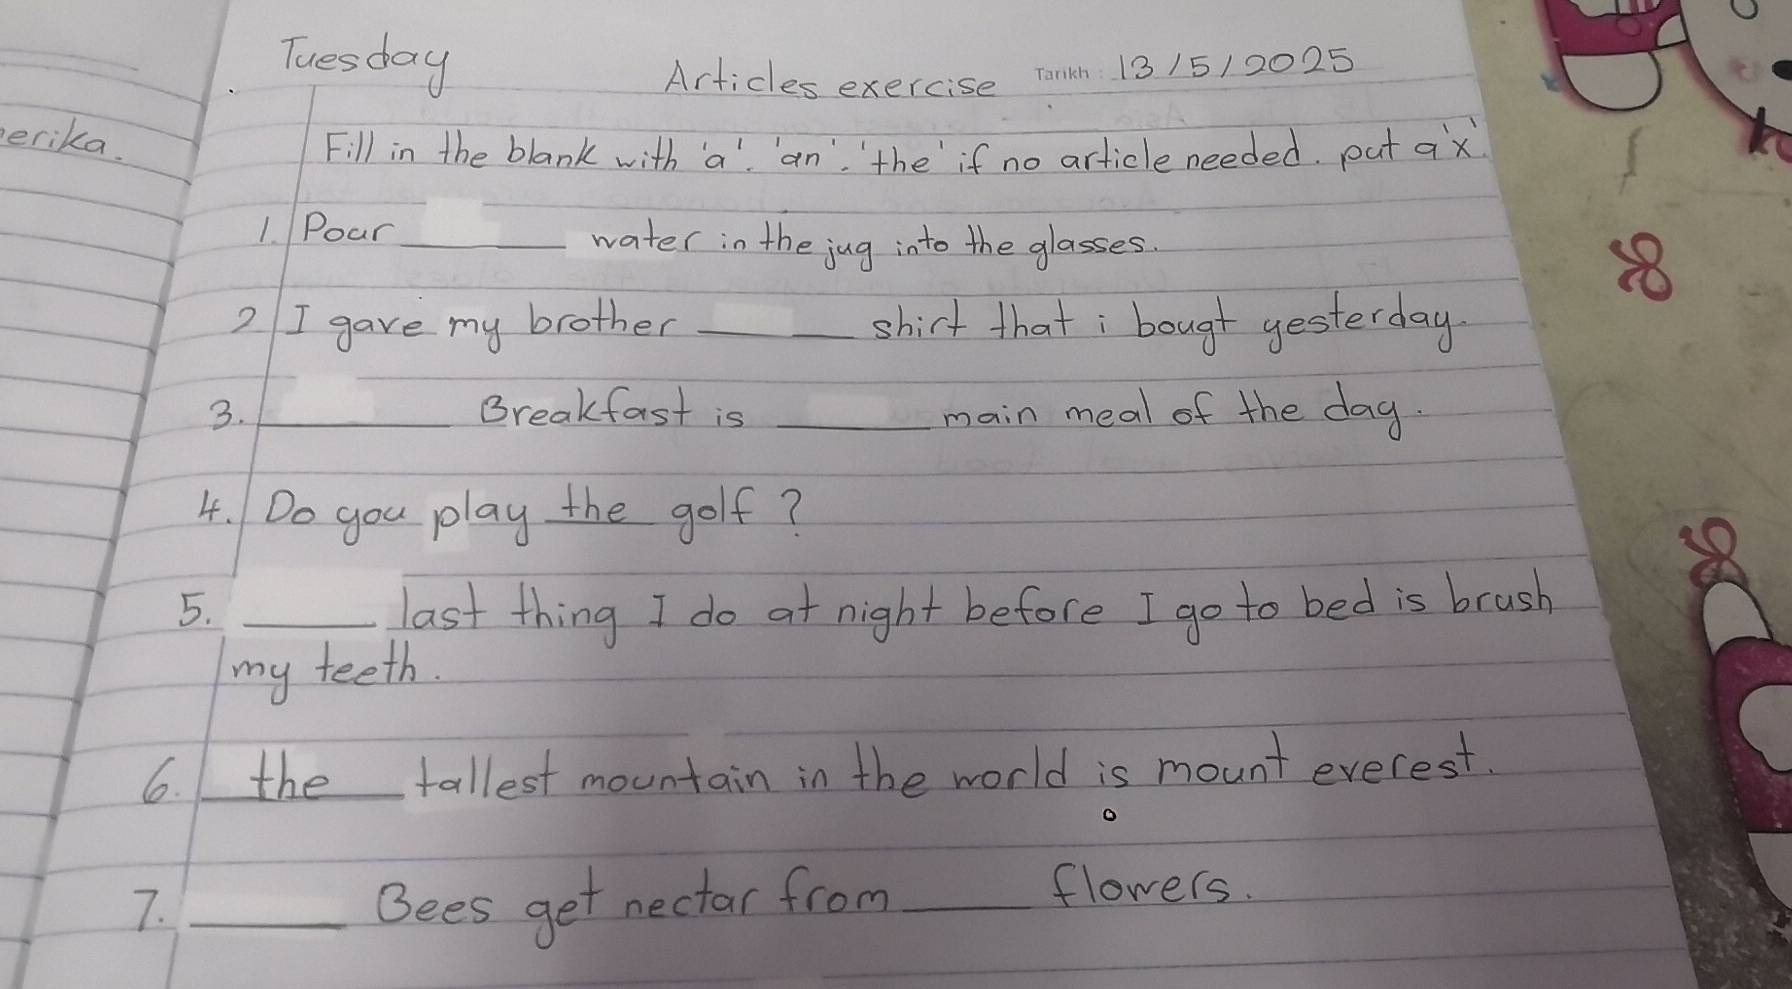 Tuesday
Articles exercise Tarikh: 13/5/2025
Fill in the blank with 'a'. 'an'. 'the' if no article needed. put a 'x'.
1. Pour ______ water in the jug into the glasses.
2 I gave my brother ______ shirt that i bougt yesterday.
3. ______ Breakfast is ______ main meal of the day.
4. Do you play the golf?
5. ______ last thing I do at night before I go to bed is brush
my teeth.
6. the tallest mountain in the world is mount everest.
7. ______ Bees get nectar from ______ flowers.